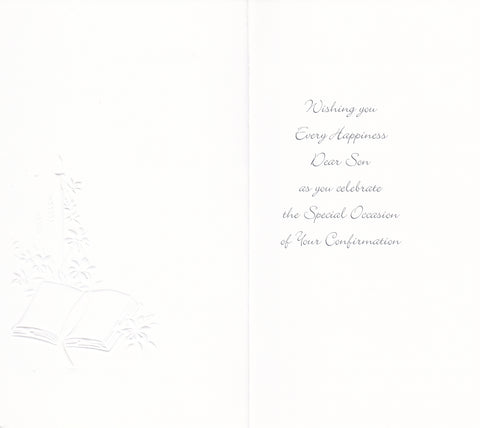 Wishing you
Every Happiness
Dear Son
as you celebrate
the Special Occasion
of Your Confirmation